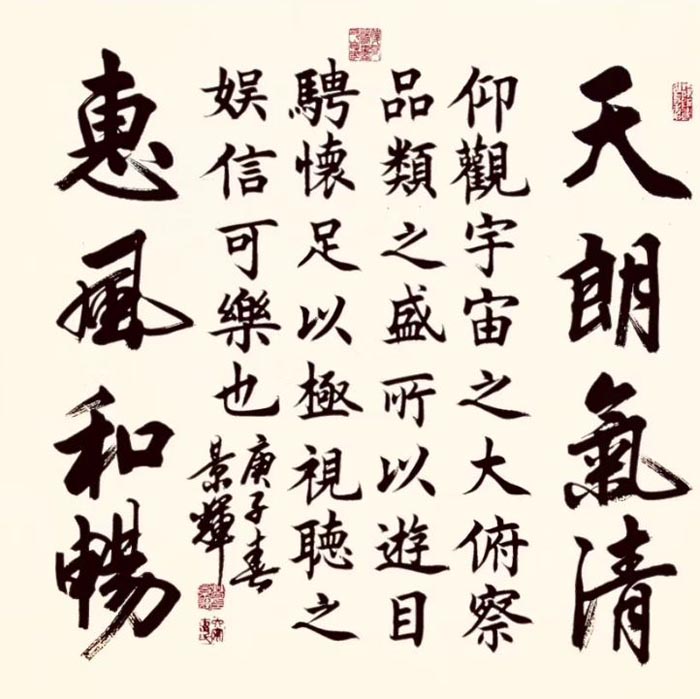 天朗氣清
仰觀宇宙之大俯察
品類之盛所以遊目
騁懷足以極視聽之
娱信可樂也
庚子春
景輝
惠風和暢